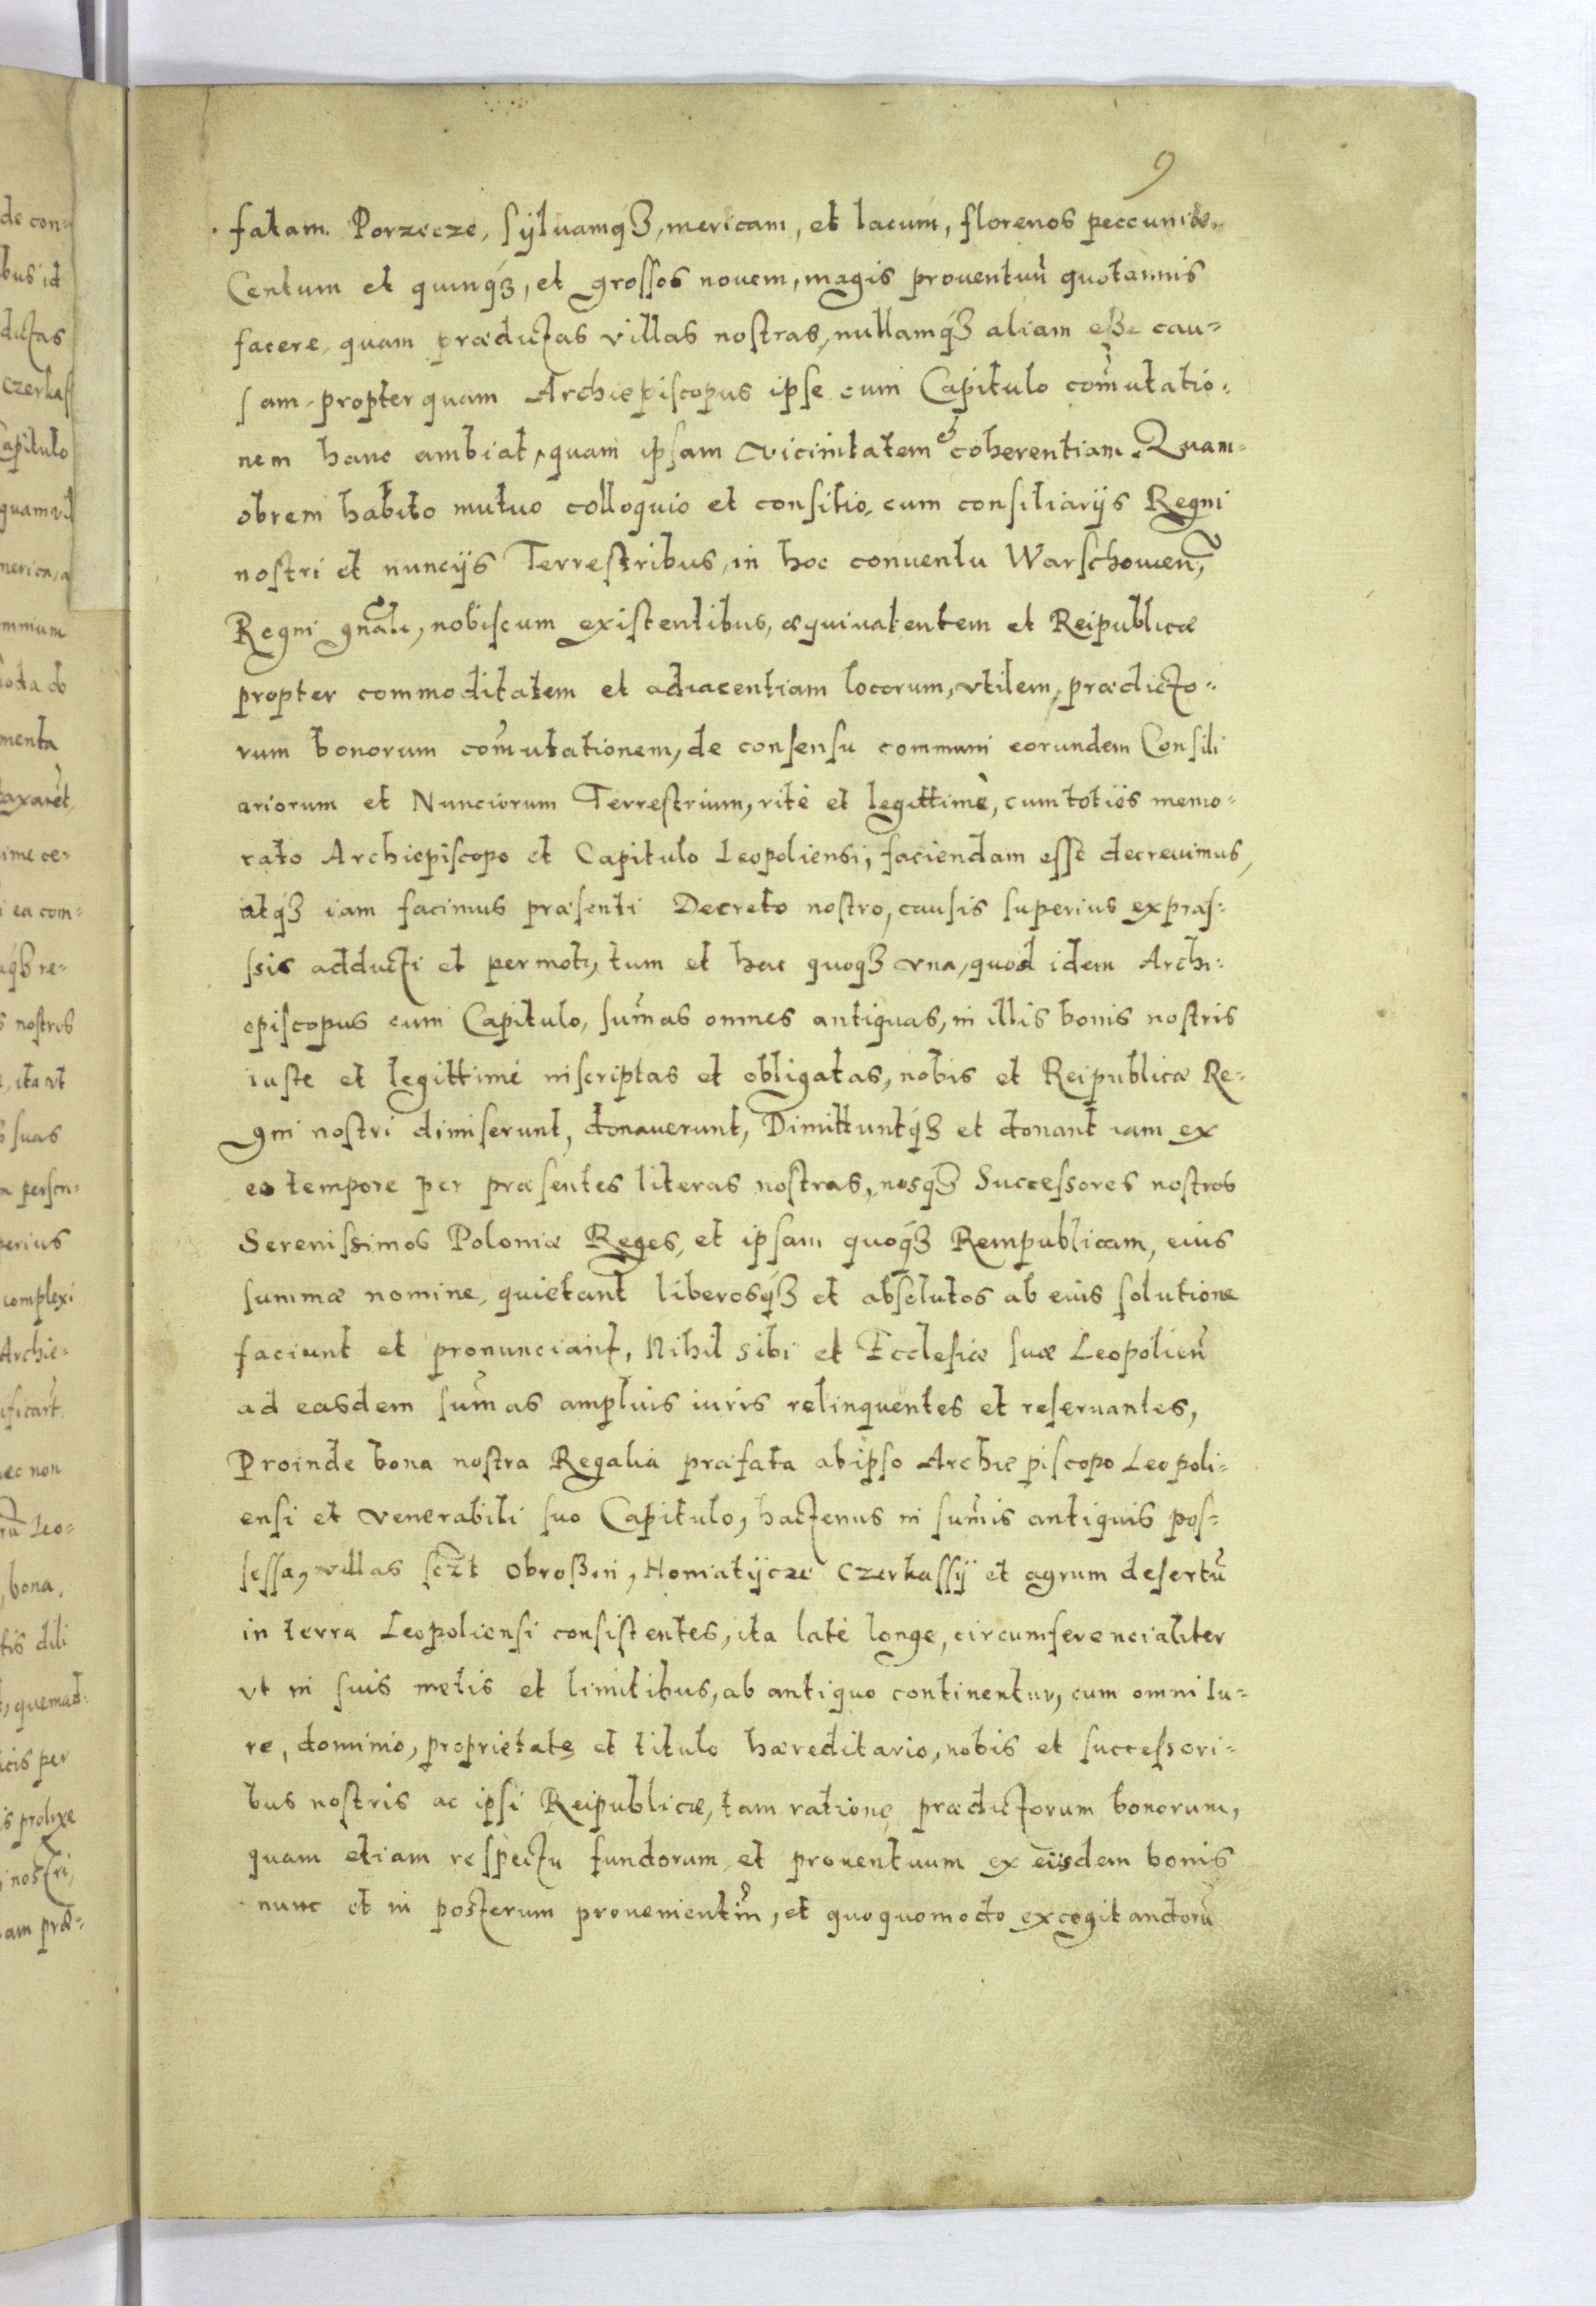 9
fatam Porzecze, sÿluamq́ꝫ, mericam, et lacum, florenos peccuniæ,
Centum et quinq́ꝫ, et grossos nouem, magis prouentuũ quotannis
facere, quam prædictas villas nostras, nullamq́ꝫ aliam eße cau-
sam, propter quam Archiepiscopus ipse cum Capitulo com̃utatio-
nem hanc ambiat, quam ipsam vicinitatem et coherentiam. Quam-
obrem habito mutuo colloquio et consilio, cum consiliarijs Regni
nostri et nuncijs Terrestribus, in hoc conuentu Warschouien̄,
Regni gñali, nobiscum existentibus, æquiualentem et Reipublicæ
propter commoditatem et adiacentiam locorum, vtilem, prædicto-
rum bonorum com̃utationem, de consensu communi eorundem Consili
ariorum et Nunciorum Terrestrium, ritè et legittimè, cum toties memo-
rato Archiepiscopo et Capitulo Leopoliensi, faciendam esse decreuimus,
atq́ꝫ iam facimus præsenti Decreto nostro, causis superius expræs-
ssis adducti et permoti, tum et hac quoqꝫ vna, quod idem Archi-
episcopus cum Capitulo, sum̃as omnes antiquas, in illis bonis nostris
iuste et legittimè inscriptas et obligatas, nobis et Reipublicæ Re-
gni nostri dimiserunt, donauerunt, Dimittuntq́ꝫ et donant iam ex
eo tempore per præsentes literas nostras, nosqꝫ Successores nostros
Serenissimos Poloniæ Reges, et ipsam quoq́ꝫ Rempublicam, eius
summæ nomine, quietant liberosq́ꝫ et absolutos ab eius solutione
faciunt et pronunciant, Nihil sibi et Ecclesiæ suæ Leopolien̄
ad easdem sum̃as amplius iuris relinquentes et reseruantes,
Proinde bona nostra Regalia præfata ab ipso Archiepiscopo Leopoli-
ensi et venerabili suo Capitulo, hactenus in sum̃is antiquis pos-
sessa, villas sc̃zt Obroßin, Homiatÿcze Czerkassÿ et agrum desertũ
in terra Leopoliensi consistentes, ita latè longe, circumferencialiter
vt in suis metis et limitibus, ab antiquo continentur, cum omni Iu-
re, dominio, proprietate et titulo hæreditario, nobis et successori-
bus nostris ac ipsi Reipublicæ, tam ratione prædictorum bonorum,
quam etiam respectu fundorum et prouentuum ex eisdem bonis
nunc et in posterum prouenientiũ, et quoquomodo excogitandorũ